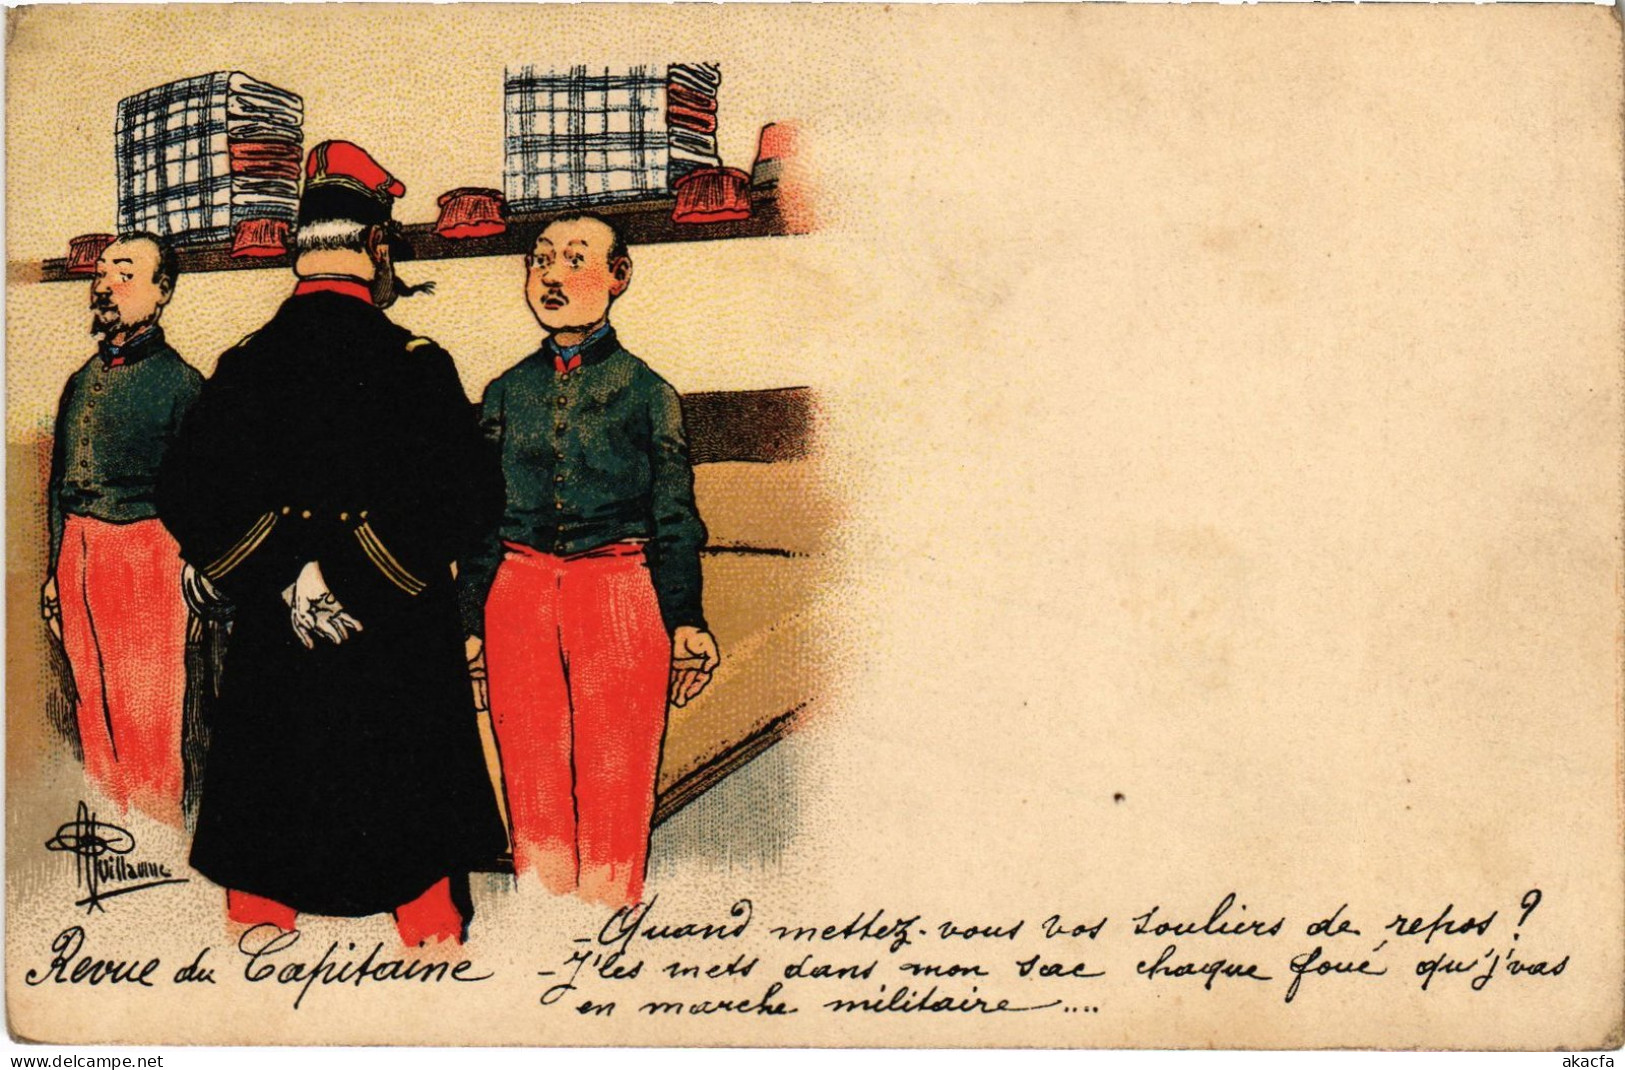 Guillaume
Revue du Capitaine
- Quand mettez-vous vos souliers de repos ?
- J'les mets dans mon sac chaque foué qu'j'vas
en marche militaire ....
delcampe.net
akacfa